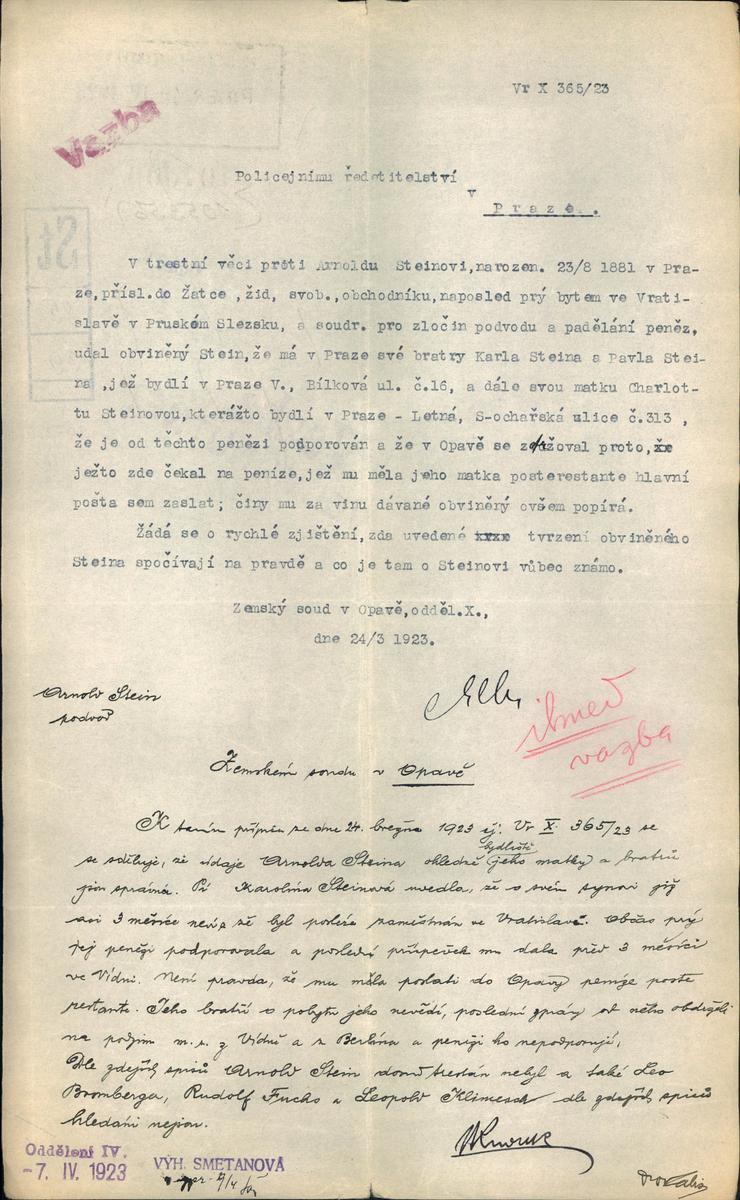 Vr X 365/23
Vazba
Policejnímu ředetitelství
v
Praze.
V trestní věci proti Arnoldu Steinovi, narozen. 23/8 1881 v Pra-
ze, přísl. do Žatce, žid, svob., obchodníku, naposled prý bytem ve Vrati-
slavě v Pruském Slezsku, a soudr. pro zločin podvodu a padělání peněz,
udal obviněný Stein, že má v Praze své bratry Karla Steina a Pavla Stei-
na, jež bydlí v Praze V., Bílková ul. č.16, a dále svou matku Charlot-
tu Steinovou, kterážto bydlí v Praze - Letná, S-ochařská ulice č.313,
že je od těchto penězi podporován a že v Opavě se zdržoval proto,
ježto zde čekal na peníze, jež mu měla jeho matka posterestante hlavní
pošta sem zaslat; činy mu za vinu dávané obviněný ovšem popírá.
Žádá se o rychlé zjištění, zda uvedené xxxx tvrzení obviněného
Steina spočívají na pravdě a co je tam o Steinovi vůbec známo.
Zemský soud v Opavě, odděl.X.,
dne 24/3 1923.
Arnold Stein
podvod
ihned
vazba
Zemskému soudu v Opavě
K tamní přípisu ze dne 24. března 1923 čj. Vr X. 365/23 se
se sděluje, že údaje Arnolda Steina ohledně bydliště (jeho matky) a bratrů
jsou správná. Pí Karolina Steinová uvedla, že o svém synovi již
asi 3 měsíce neví, že byl posléze zaměstnán ve Vratislavě. Občas prý
jej penězi podporovala a poslední příspěvek mu dala před 3 měsíci
ve Vídni. Není pravda, že mu měla poslati do Opavy peníze poste
restante. Jeho bratří o pobytu jeho nevědí, poslední zprávy od něho obdrželi
na podzim m.r. z Vídně a z Berlína a penězi ho nepodporují.
Dle zdejších spisů Arnold Stein dosud trestán nebyl a také Leo
Bromberger, Rudolf Fuchs a Leopold Klimesch dle zdejších spisů
hledáni nejsou.
Oddělení IV.
-7. IV. 1923
VÝH. SMETANOVÁ